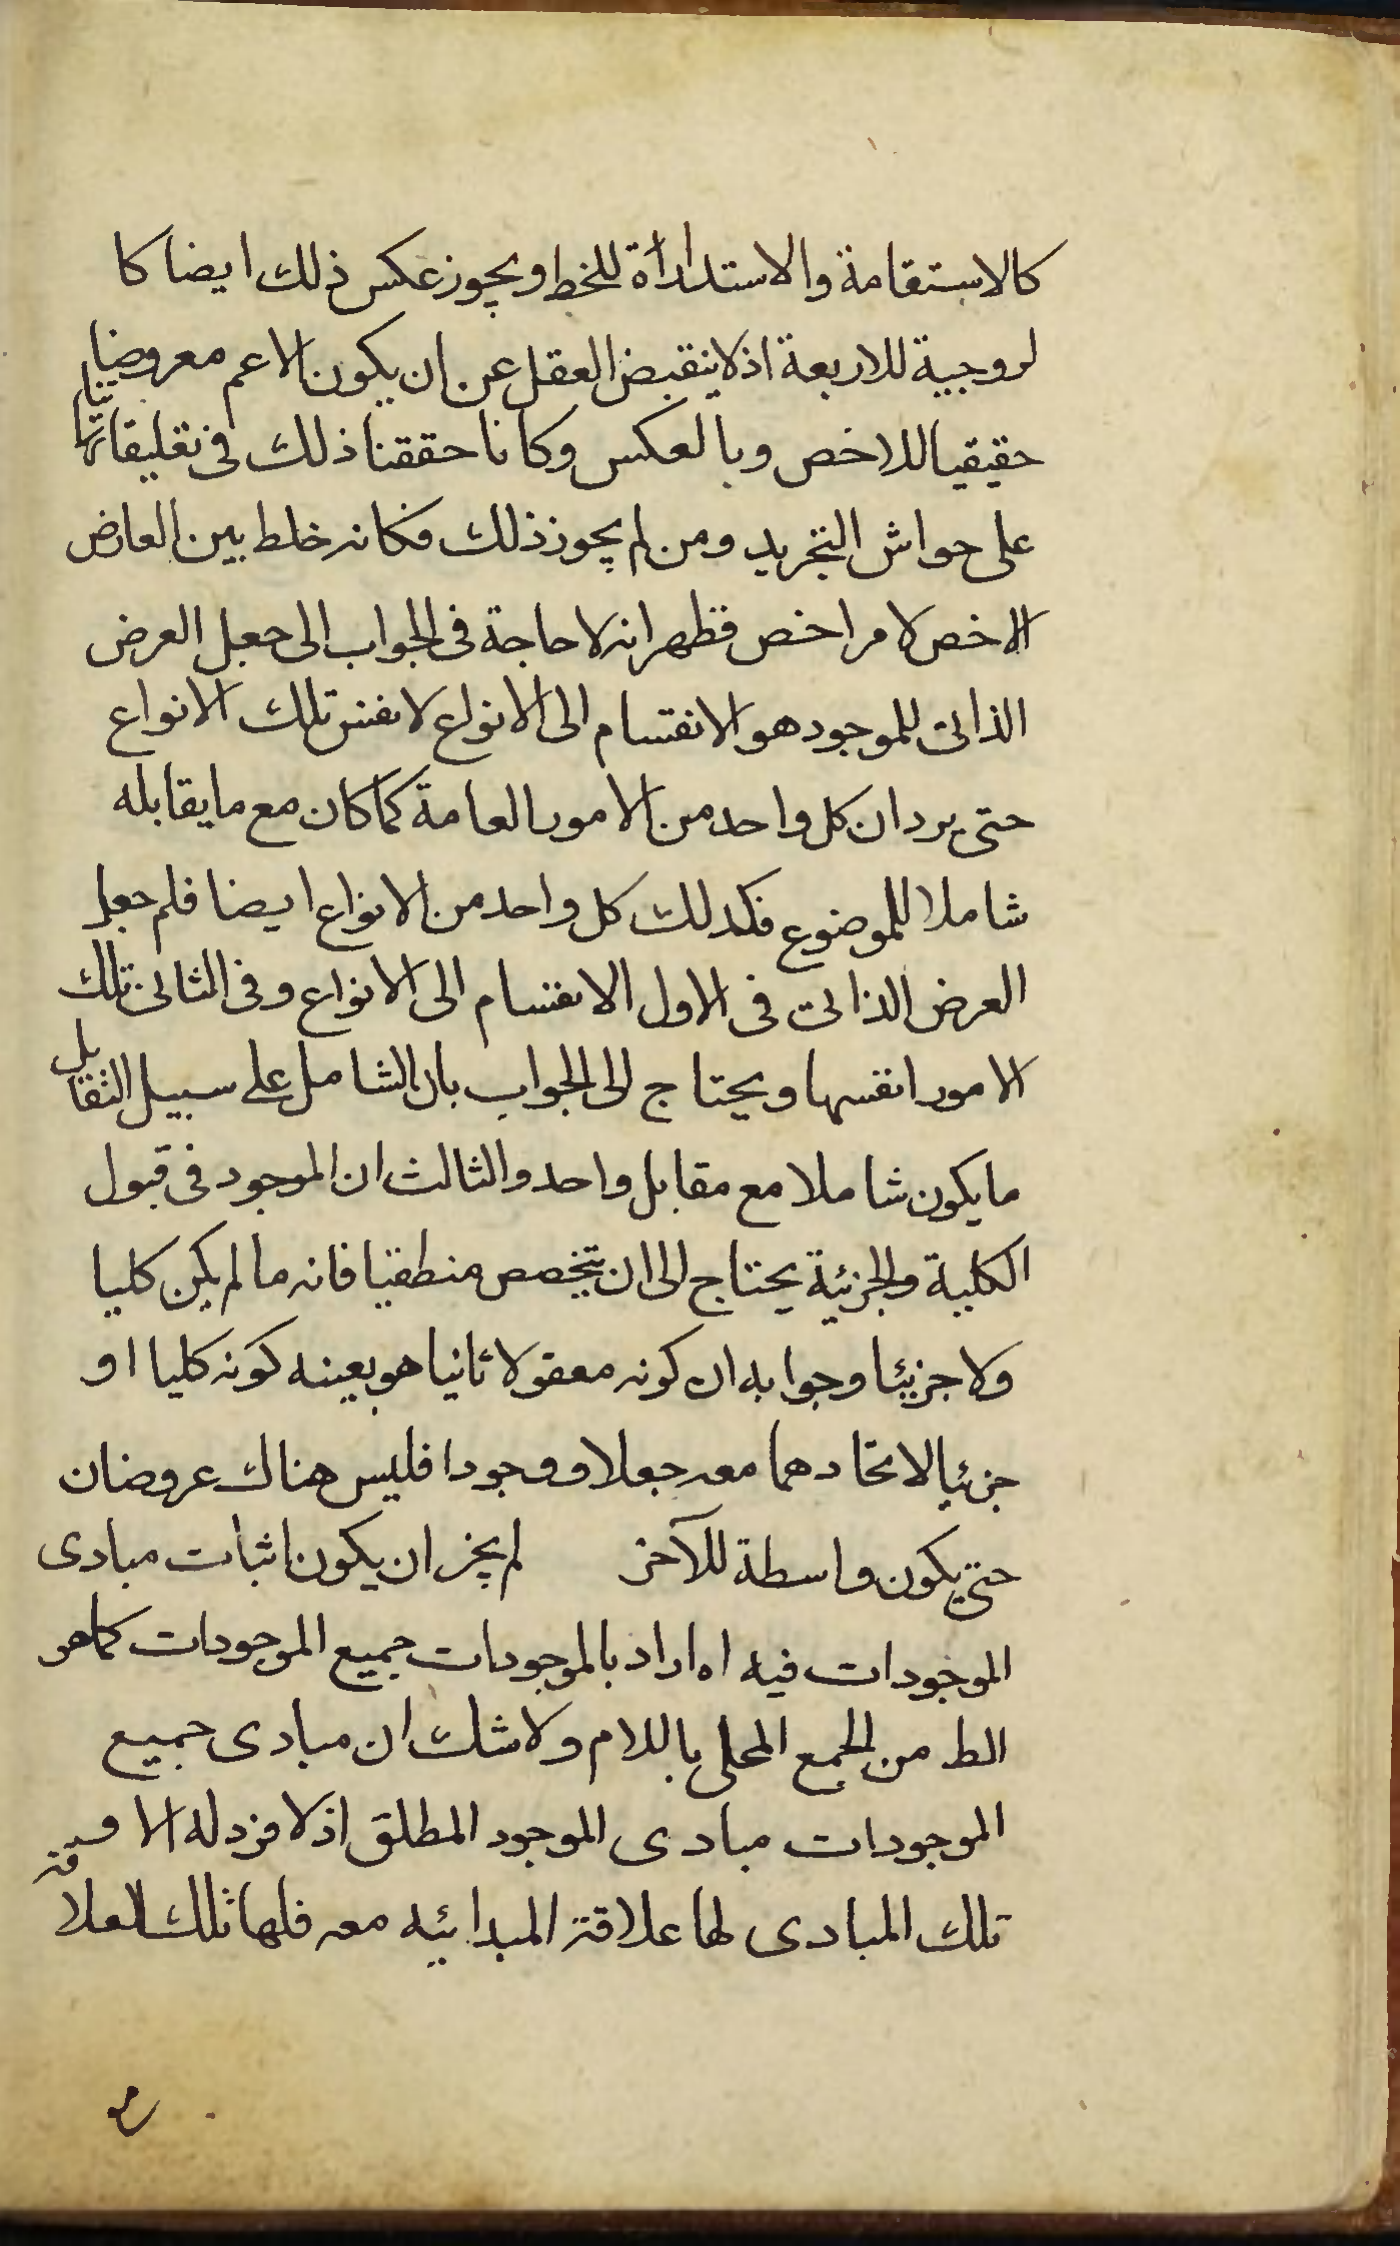 كالاستقامة والاستدارة للخط ويجوز عكس ذلك ايضا كا
لزوجية للاربعة اذ لا ينقبض العقل عن ان يكون الاعم معروضا
حقيقيا للاخص وبالعكس وكانا حققنا ذلك فى تعليقاتنا
على حواش التجريد ومن لم يجوز ذلك فكانه خلط بين العارض
الاخص لامر اخص فظهر انه لا حاجة فى الجواب الى جعل العرض
الذاتى للموجود هو الانقسام الى الانواع لا نفس تلك الانواع
حتى يرد ان كل واحد من الامور العامة كما كان مع ما يقابله
شاملا للموضوع فكذلك كل واحد من الانواع ايضا فلم جعل
العرض الذاتى فى الاول الانقسام الى الانواع وفى الثانى تلك
الامور انفسها ويحتاج الى الجواب بان الشامل على سبيل التقابل
ما يكون شاملا مع مقابل واحد والثالث ان الموجود فى قبول
الكلية والجزئية يحتاج الى ان يتخصص منطقيا فانه ما لم يكن كليا
ولا جزئيا وجوابه ان كونه معقولا ثانيا هو بعينه كونه كليا او
جزئيا لاتحادهما معه جعلا ووجودا فليس هناك عروضان
حتى يكون واسطة للآخر لم يجز ان يكون اثبات مبادى
الموجودات فيه اه اراد بالموجودات جميع الموجودات كما هو
الظ من الجمع المحلى باللام ولا شك ان مبادى جميع
الموجودات مبادى الموجود المطلق اذ لا فرد له الا و
تلك المبادى لها علاقة المبدائيه معه فلها تلك العلاقة